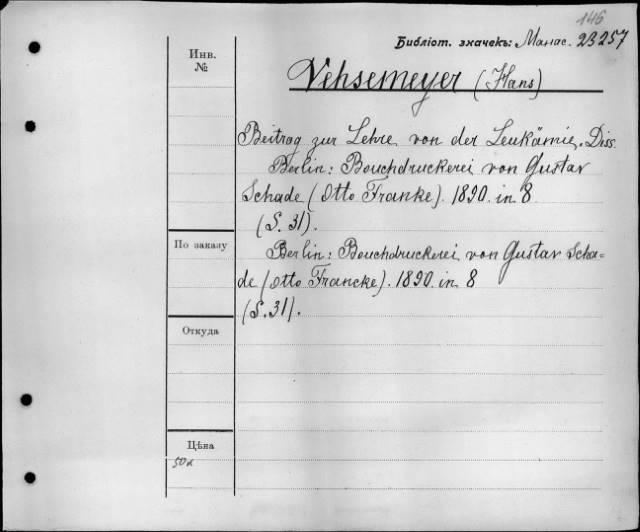 146
Библіот. значекъ: Манас. 23257
Инв.
№
Vehsemeyer (Hans)
Beitrag zur Lehre von der Leukämie. Diss.
Berlin: Bouchdruckerei von Gustav
Schade (Otto Franke). 1890. in 8
(S. 31).
По заказу
Berlin: Bouchdruckerei von Gustav Scha-
de (Otto Francke). 1890. in 8
(S. 31).
Откуда
Цѣна